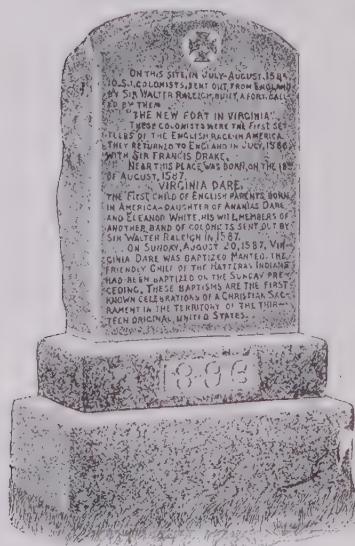 ON THIS SITE, IN JULY-AUGUST, 1585
(O.S.), COLONISTS, SENT OUT FROM ENGLAND
BY SIR WALTER RALEIGH, BUILT A FORT, CALL
ED BY THEM
"THE NEW FORT IN VIRGINIA"
THESE COLONISTS WERE THE FIRST SET
TLERS OF THE ENGLISH RACE IN AMERICA.
THEY RETURNED TO ENGLAND IN JULY, 1586
WITH SIR FRANCIS DRAKE.
NEAR THIS PLACE WAS BORN, ON THE 18TH
OF AUGUST, 1587,
VIRGINIA DARE,
THE FIRST CHILD OF ENGLISH PARENTS BORN
IN AMERICA-DAUGHTER OF ANANIAS DARE
AND ELEANOR WHITE, HIS WIFE, MEMBERS OF
ANOTHER BAND OF COLONISTS SENT OUT BY
SIR WALTER RALEIGH IN 1587.
ON SUNDAY, AUGUST 20, 1587, VIR-
GINIA DARE WAS BAPTIZED. MANTEO, THE
FRIENDLY CHIEF OF THE HATTERAS INDIANS
HAD BEEN BAPTIZED ON THE SUNDAY PRE-
CEDING. THESE BAPTISMS ARE THE FIRST
KNOWN CELEBRATIONS OF A CHRISTIAN SAC-
RAMENT IN THE TERRITORY OF THE THIR-
TEEN ORIGINAL UNITED STATES.
1896